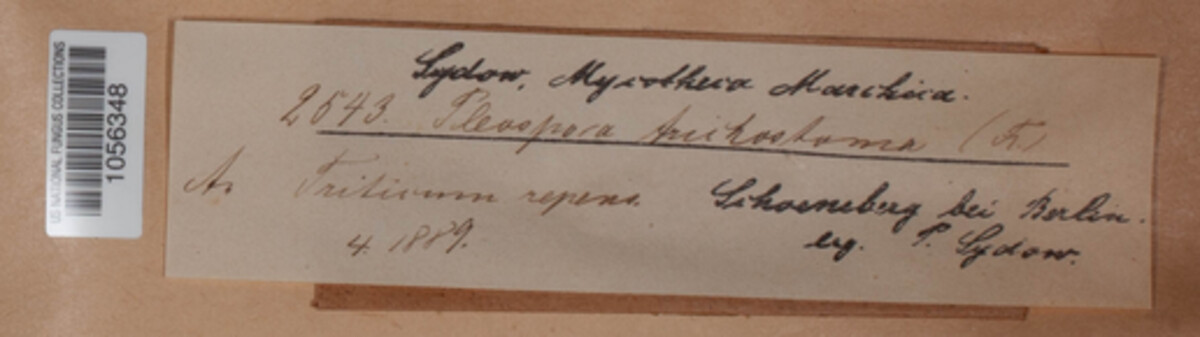 US NATIONAL FUNGUS COLLECTIONS
1056348
Sydow, Mycotheca Marchica.
2543. Pleospora trichostoma (Fr)
A. Triticum repens. Schoeneberg bei Berlin.
4. 1889. leg. P. Sydow.